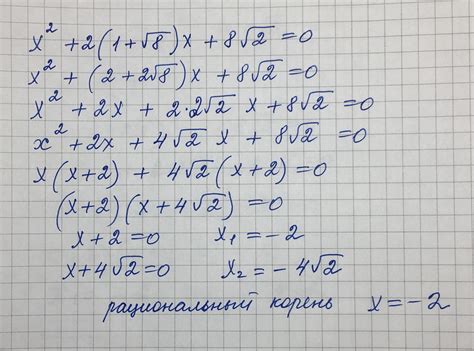 x² + 2(1+√8)x + 8√2 = 0
x² + (2+2√8)x + 8√2 = 0
x² + 2x + 2·2√2 x + 8√2 = 0
x² + 2x + 4√2 x + 8√2 = 0
x(x+2) + 4√2(x+2) = 0
(x+2)(x+4√2) = 0
x+2=0 x₁ = -2
x+4√2=0 x₂ = -4√2
рациональный корень x = -2